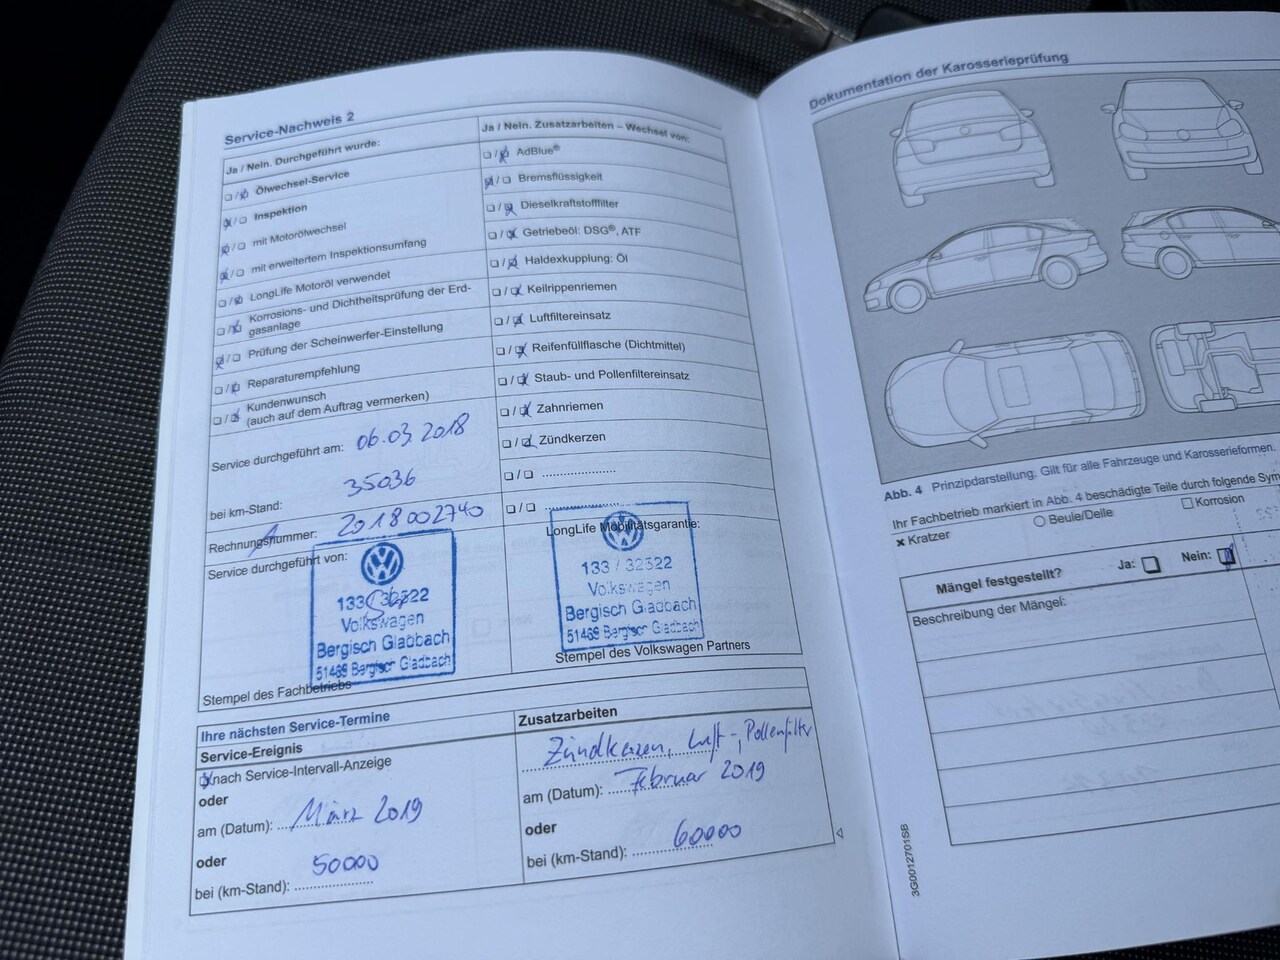 Service-Nachweis 2
Ja / Nein. Durchgeführt wurde:
Ölwechsel-Service
Inspektion
mit Motorölwechsel
mit erweitertem Inspektionsumfang
LongLife Motoröl verwendet
Korrosions- und Dichtheitsprüfung der Erd-
gasanlage
Prüfung der Scheinwerfer-Einstellung
Reparaturempfehlung
Kundenwunsch
(auch auf dem Auftrag vermerken)
Service durchgeführt am: 06.03.2018
bei km-Stand: 35036
Rechnungsnummer: 2018002740
Service durchgeführt von:
133 / 32322
Volkswagen
Bergisch Gladbach
51469 Bergisch Gladbach
Stempel des Fachbetriebs
Ja / Nein. Zusatzarbeiten – Wechsel von:
AdBlue®
Bremsflüssigkeit
Dieselkraftstofffilter
Getriebeöl: DSG®, ATF
Haldexkupplung: Öl
Keilrippenriemen
Luftfiltereinsatz
Reifenfüllflasche (Dichtmittel)
Staub- und Pollenfiltereinsatz
Zahnriemen
Zündkerzen
LongLife Mobilitätsgarantie:
133 / 32322
Volkswagen
Bergisch Gladbach
51469 Bergisch Gladbach
Stempel des Volkswagen Partners
Ihre nächsten Service-Termine
Service-Ereignis
nach Service-Intervall-Anzeige
oder
am (Datum): März 2019
oder
bei (km-Stand): 50000
Zusatzarbeiten
Zündkerzen, Luft-, Pollenfilter
am (Datum): Februar 2019
oder
bei (km-Stand): 60000
Dokumentation der Karosserieprüfung
Abb. 4 Prinzipdarstellung. Gilt für alle Fahrzeuge und Karosserieformen.
Ihr Fachbetrieb markiert in Abb. 4 beschädigte Teile durch folgende Sym
× Kratzer
Beule/Delle
Korrosion
Mängel festgestellt?
Ja:
Nein:
Beschreibung der Mängel:
3G0012701SB